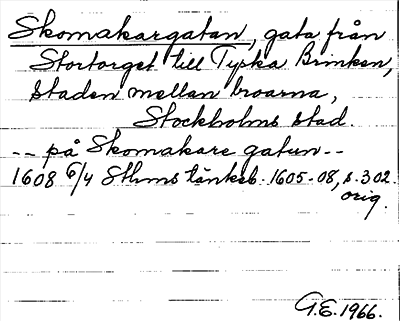 Skomakargatan, gata från
Stortorget till Tyska Brinken,
staden mellan broarna,
Stockholms stad.
-- på Skomakare gatun --
1608 6/4 Sthms tänkeb. 1605-08, s. 302.
orig.
G.E. 1966.